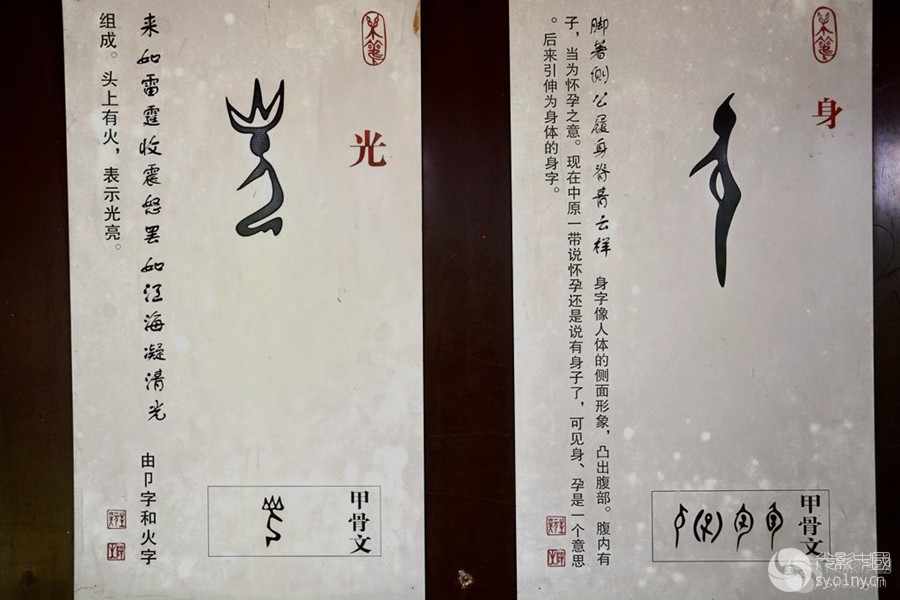 光
来如雷霆收震怒罢如江海凝清光 由卩字和火字
组成。头上有火，表示光亮。
甲骨文
身
脚著谢公屐身登青云梯 身字像人体的侧面形象，凸出腹部。腹内有
子，当为怀孕之意。现在中原一带说怀孕还是说有身子了，可见身、孕是一个意思
。后来引伸为身体的身字。
甲骨文